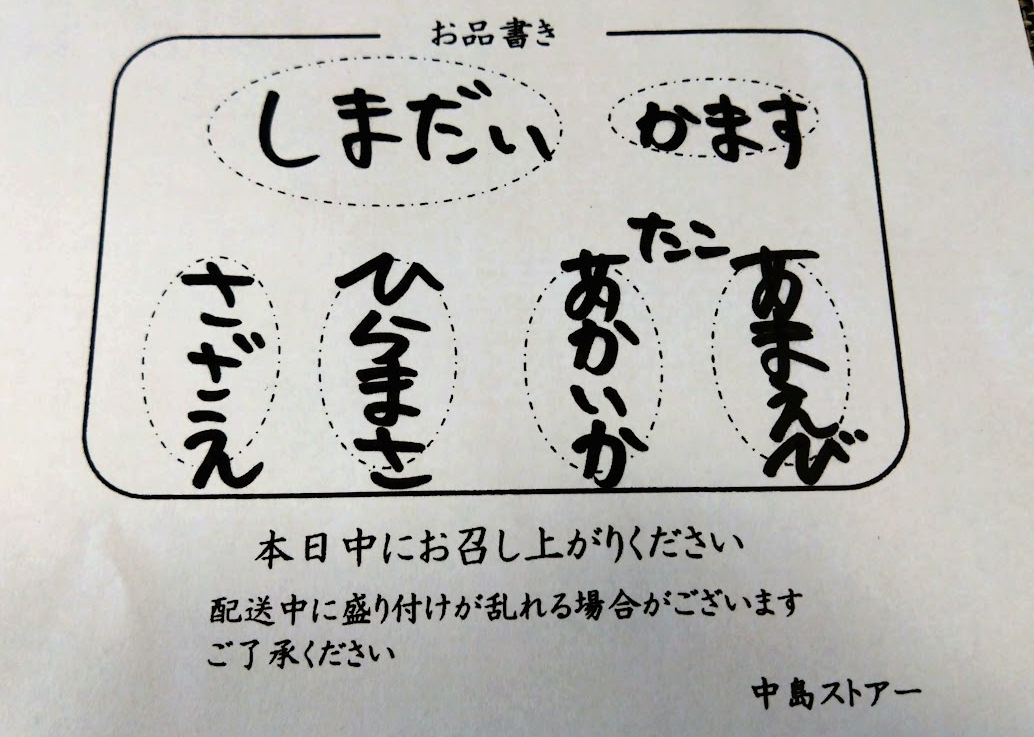 お品書き
しまだい
かます
たこ
さざえ
ひらまさ
あかいか
あまえび
本日中にお召し上がりください
配送中に盛り付けが乱れる場合がございます
ご了承ください
中島ストアー